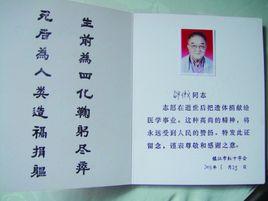 生前為四化鞠躬尽瘁
死后為人类造福捐軀
同志
志部在逝世后把遗体捐献给
医学事业。这种高尚的精神，将
永远受到人民的赞扬。特发此证
留念，谨表尊敬和感谢之意。
镇江市红十字会